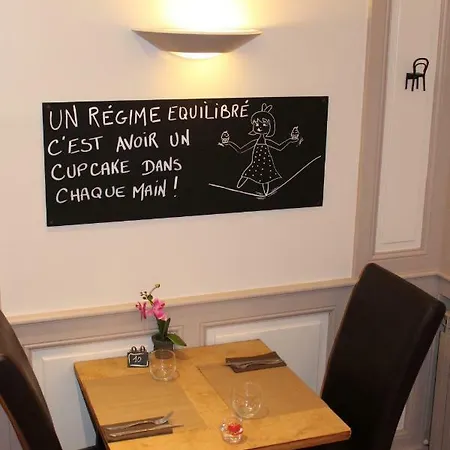 UN RÉGIME EQUILIBRÉ
C'EST AVOIR UN
CUPCAKE DANS
CHAQUE MAIN !
10